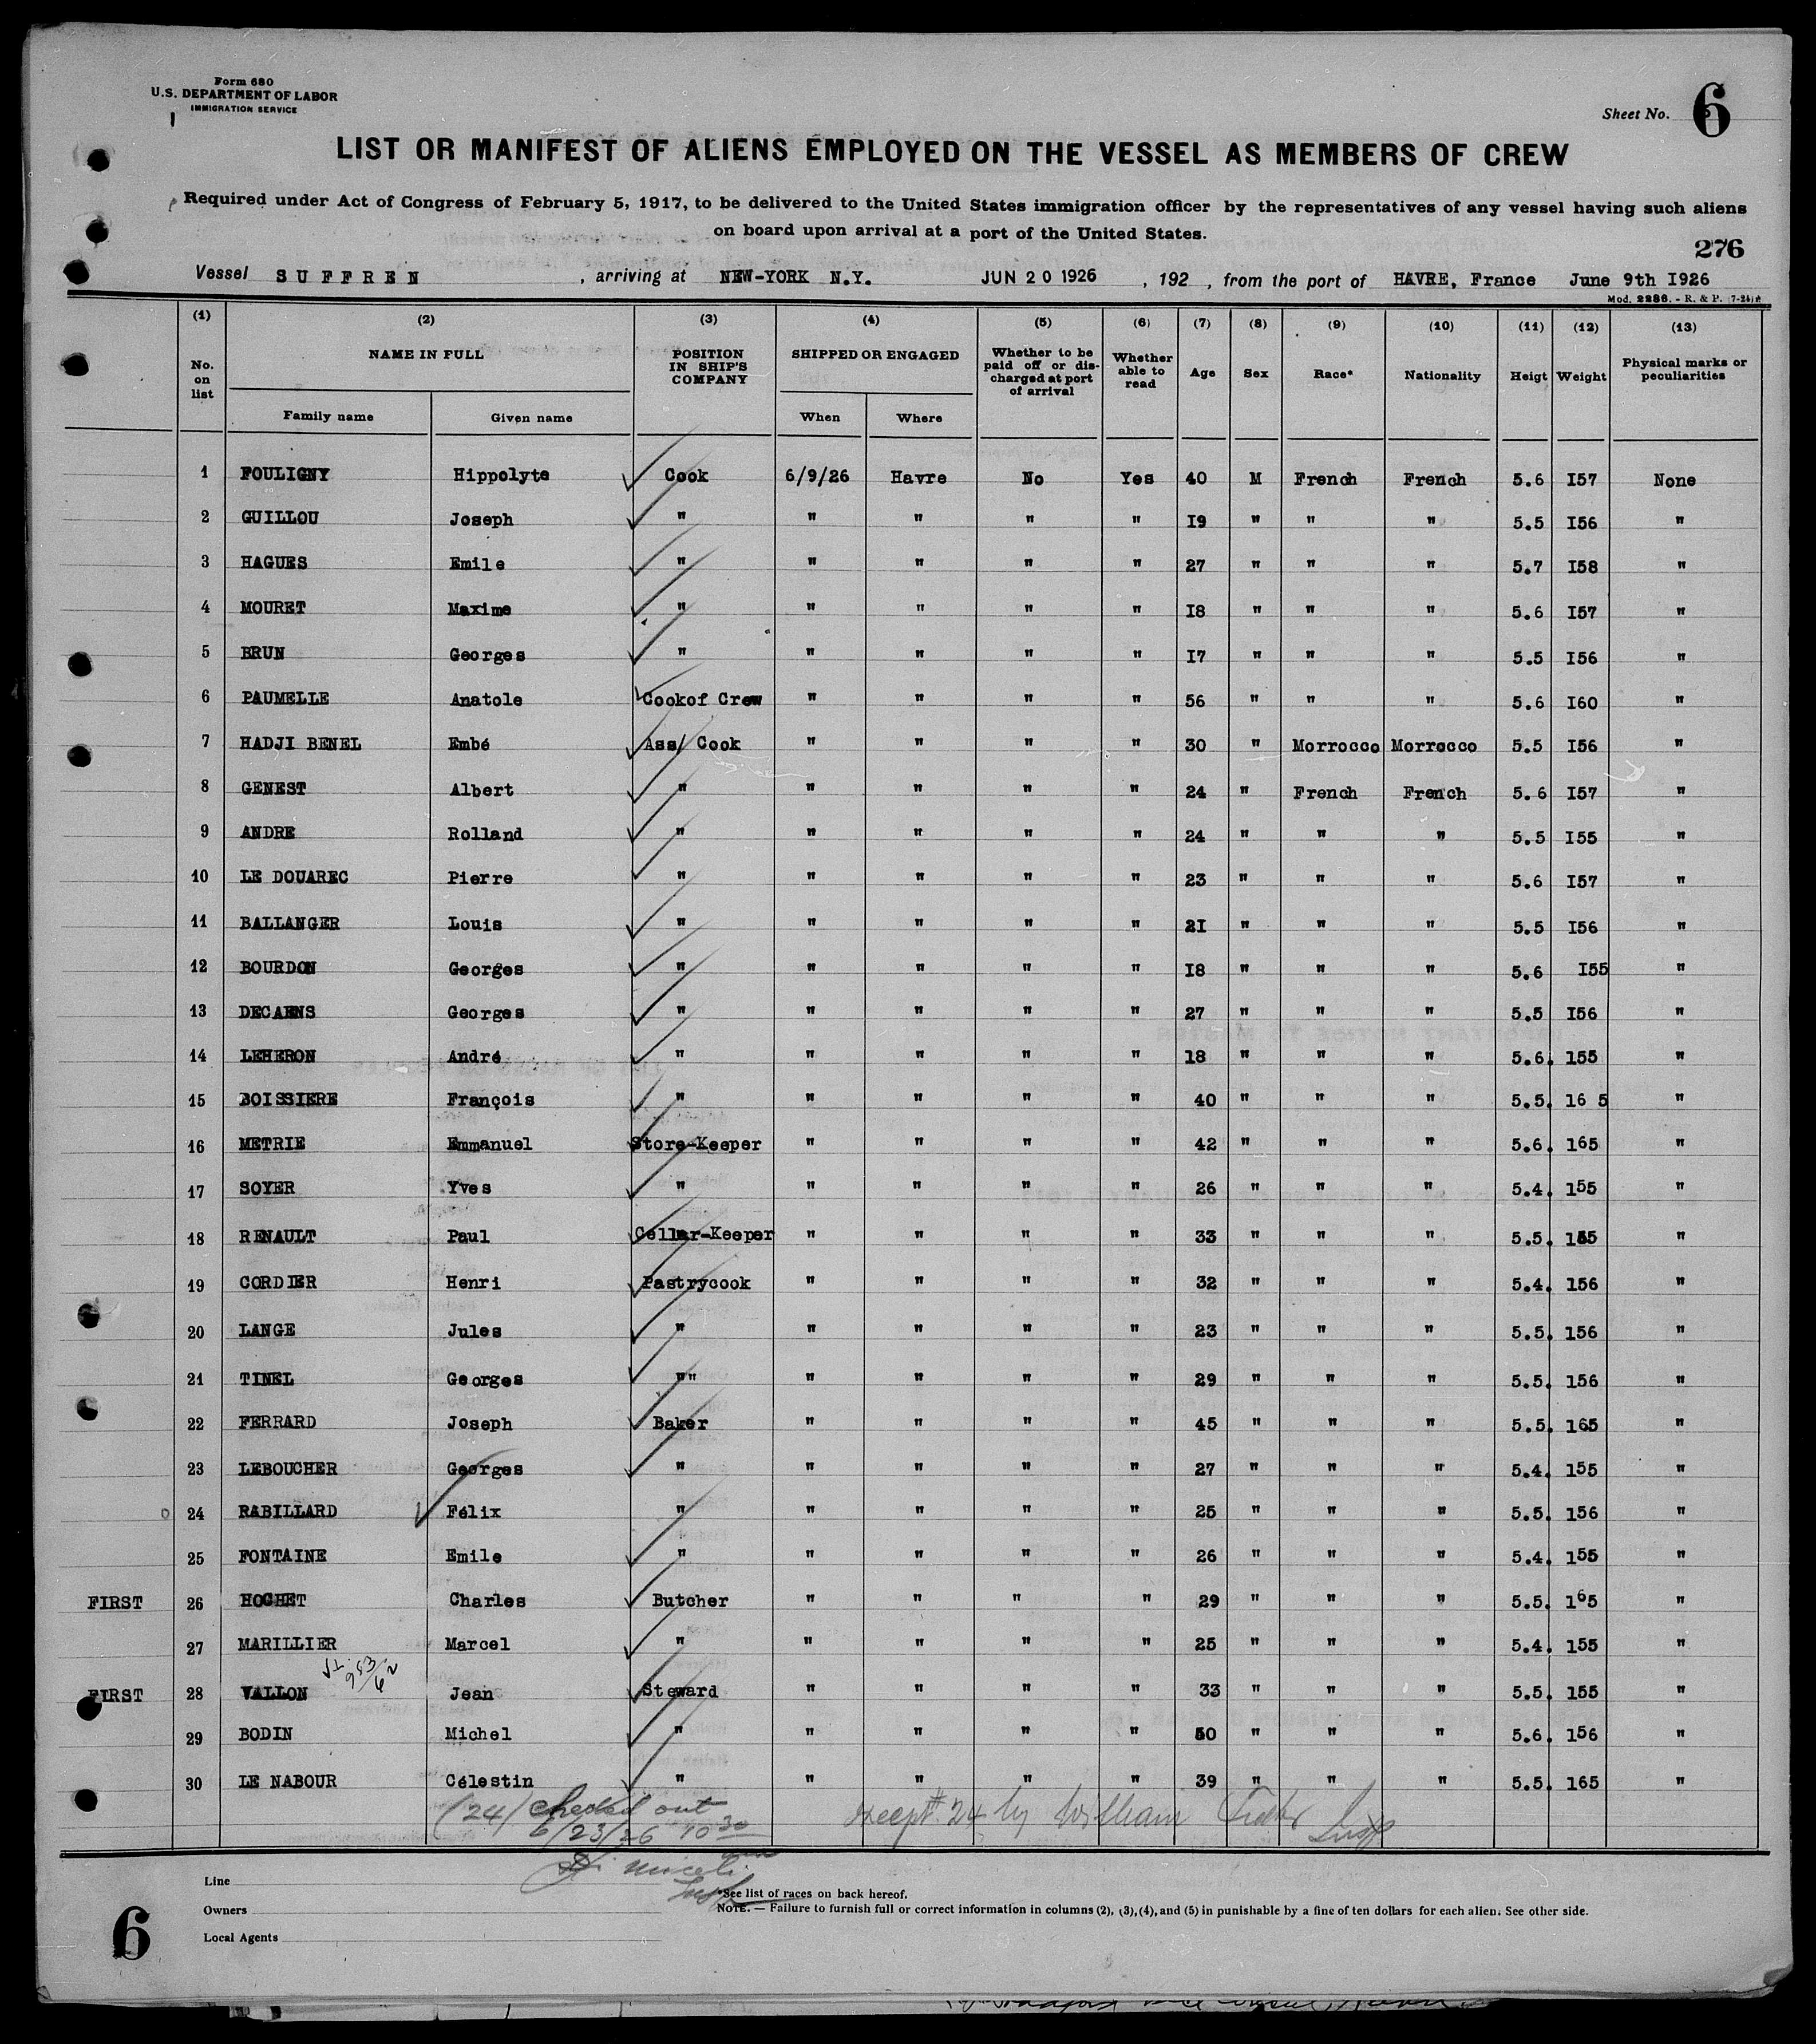 Form 680
U.S. DEPARTMENT OF LABOR
IMMIGRATION SERVICE
Sheet No. 6
LIST OR MANIFEST OF ALIENS EMPLOYED ON THE VESSEL AS MEMBERS OF CREW
Required under Act of Congress of February 5, 1917, to be delivered to the United States immigration officer by the representatives of any vessel having such aliens
on board upon arrival at a port of the United States.
276
Vessel SUFFREN , arriving at NEW-YORK N.Y. JUN 20 1926 , 192 , from the port of HAVRE, France June 9th I926
Mod. 2286. - R. & P. (7-24)
(1) (2) (3) (4) (5) (6) (7) (8) (9) (10) (11) (12) (13)
No. on list NAME IN FULL POSITION IN SHIP'S COMPANY SHIPPED OR ENGAGED Whether to be paid off or dis-charged at port of arrival Whether able to read Age Sex Race* Nationality Heigt Weight Physical marks or peculiarities
Family name Given name When Where
1 FOULIGNY Hippolyte Cook 6/9/26 Havre No Yes 40 M French French 5.6 I57 None
2 GUILLOU Joseph " " " " " I9 " " " 5.5 I56 "
3 HAGUES Emile " " " " " 27 " " " 5.7 I58 "
4 MOURET Maxime " " " " " I8 " " " 5.6 I57 "
5 BRUN Georges " " " " " I7 " " " 5.5 I56 "
6 PAUMELLE Anatole Cookof Crew " " " " 56 " " " 5.6 I60 "
7 HADJI BENEL Embé Ass/ Cook " " " " 30 " Morrocco Morrocco 5.5 I56 "
8 GENEST Albert " " " " " 24 " French French 5.6 I57 "
9 ANDRE Rolland " " " " " 24 " " " 5.5 I55 "
10 LE DOUAREC Pierre " " " " " 23 " " " 5.6 I57 "
11 BALLANGER Louis " " " " " 2I " " " 5.5 I56 "
12 BOURDON Georges " " " " " I8 " " " 5.6 I55 "
13 DECAENS Georges " " " " " 27 " " " 5.5 I56 "
14 LEHERON André " " " " " 18 " " " 5.6. 155 "
15 BOISSIERE François " " " " " 40 " " " 5.5. 16 5 "
16 METRIE Emmanuel Store-Keeper " " " " 42 " " " 5.6. 165 "
17 SOYER Yves " " " " " 26 " " " 5.4. 155 "
18 RENAULT Paul Cellar-Keeper " " " " 33 " " " 5.5. "
19 CORDIER Henri Pastrycook " " " " 32 " " " 5.4. 156 "
20 LANGE Jules " " " " " 23 " " " 5.5. 156 "
21 TINEL Georges "" " " " " 29 " " " 5.5. 156 "
22 FERRARD Joseph Baker " " " " 45 " " " 5.5. 165 "
23 LEBOUCHER Georges " " " " " 27 " " " 5.4. 155 "
24 RABILLARD Félix " " " " " 25 " " " 5.5. 156 "
25 FONTAINE Emile " " " " " 26 " " " 5.4. 155 "
FIRST 26 HOCHET Charles Butcher " " " " 29 " " " 5.5. 165 "
27 MARILLIER Marcel " " " " " 25 " " " 5.4. 155 "
953/62
FIRST 28 VALLON Jean Steward " " " " 33 " " " 5.5. 155 "
29 BODIN Michel " " " " " 50 " " " 5.6. 156 "
30 LE NABOUR Célestin " " " " " 39 " " " 5.5. 165 "
(24) checked out except # 24 by William Insp
6/23/26 10 30
Insp
Line
*See list of races on back hereof.
Owners
NOTE. — Failure to furnish full or correct information in columns (2), (3), (4), and (5) in punishable by a fine of ten dollars for each alien. See other side.
Local Agents
6